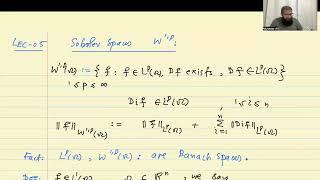 LEC-05 Sobolev Spaces W^{1,p}:
W^{1,p}(Ω) := { f : f ∈ L^p(Ω), Df exists, Df ∈ L^p(Ω) }
1 ≤ p ≤ ∞
D_i f ∈ L^p(Ω), 1 ≤ i ≤ n
‖f‖_{W^{1,p}(Ω)} := ‖f‖_{L^p(Ω)} + Σ_{i=1}^{n} ‖D_i f‖_{L^p(Ω)}
Fact: L^p(Ω), W^{1,p}(Ω) : are Banach spaces.
we say